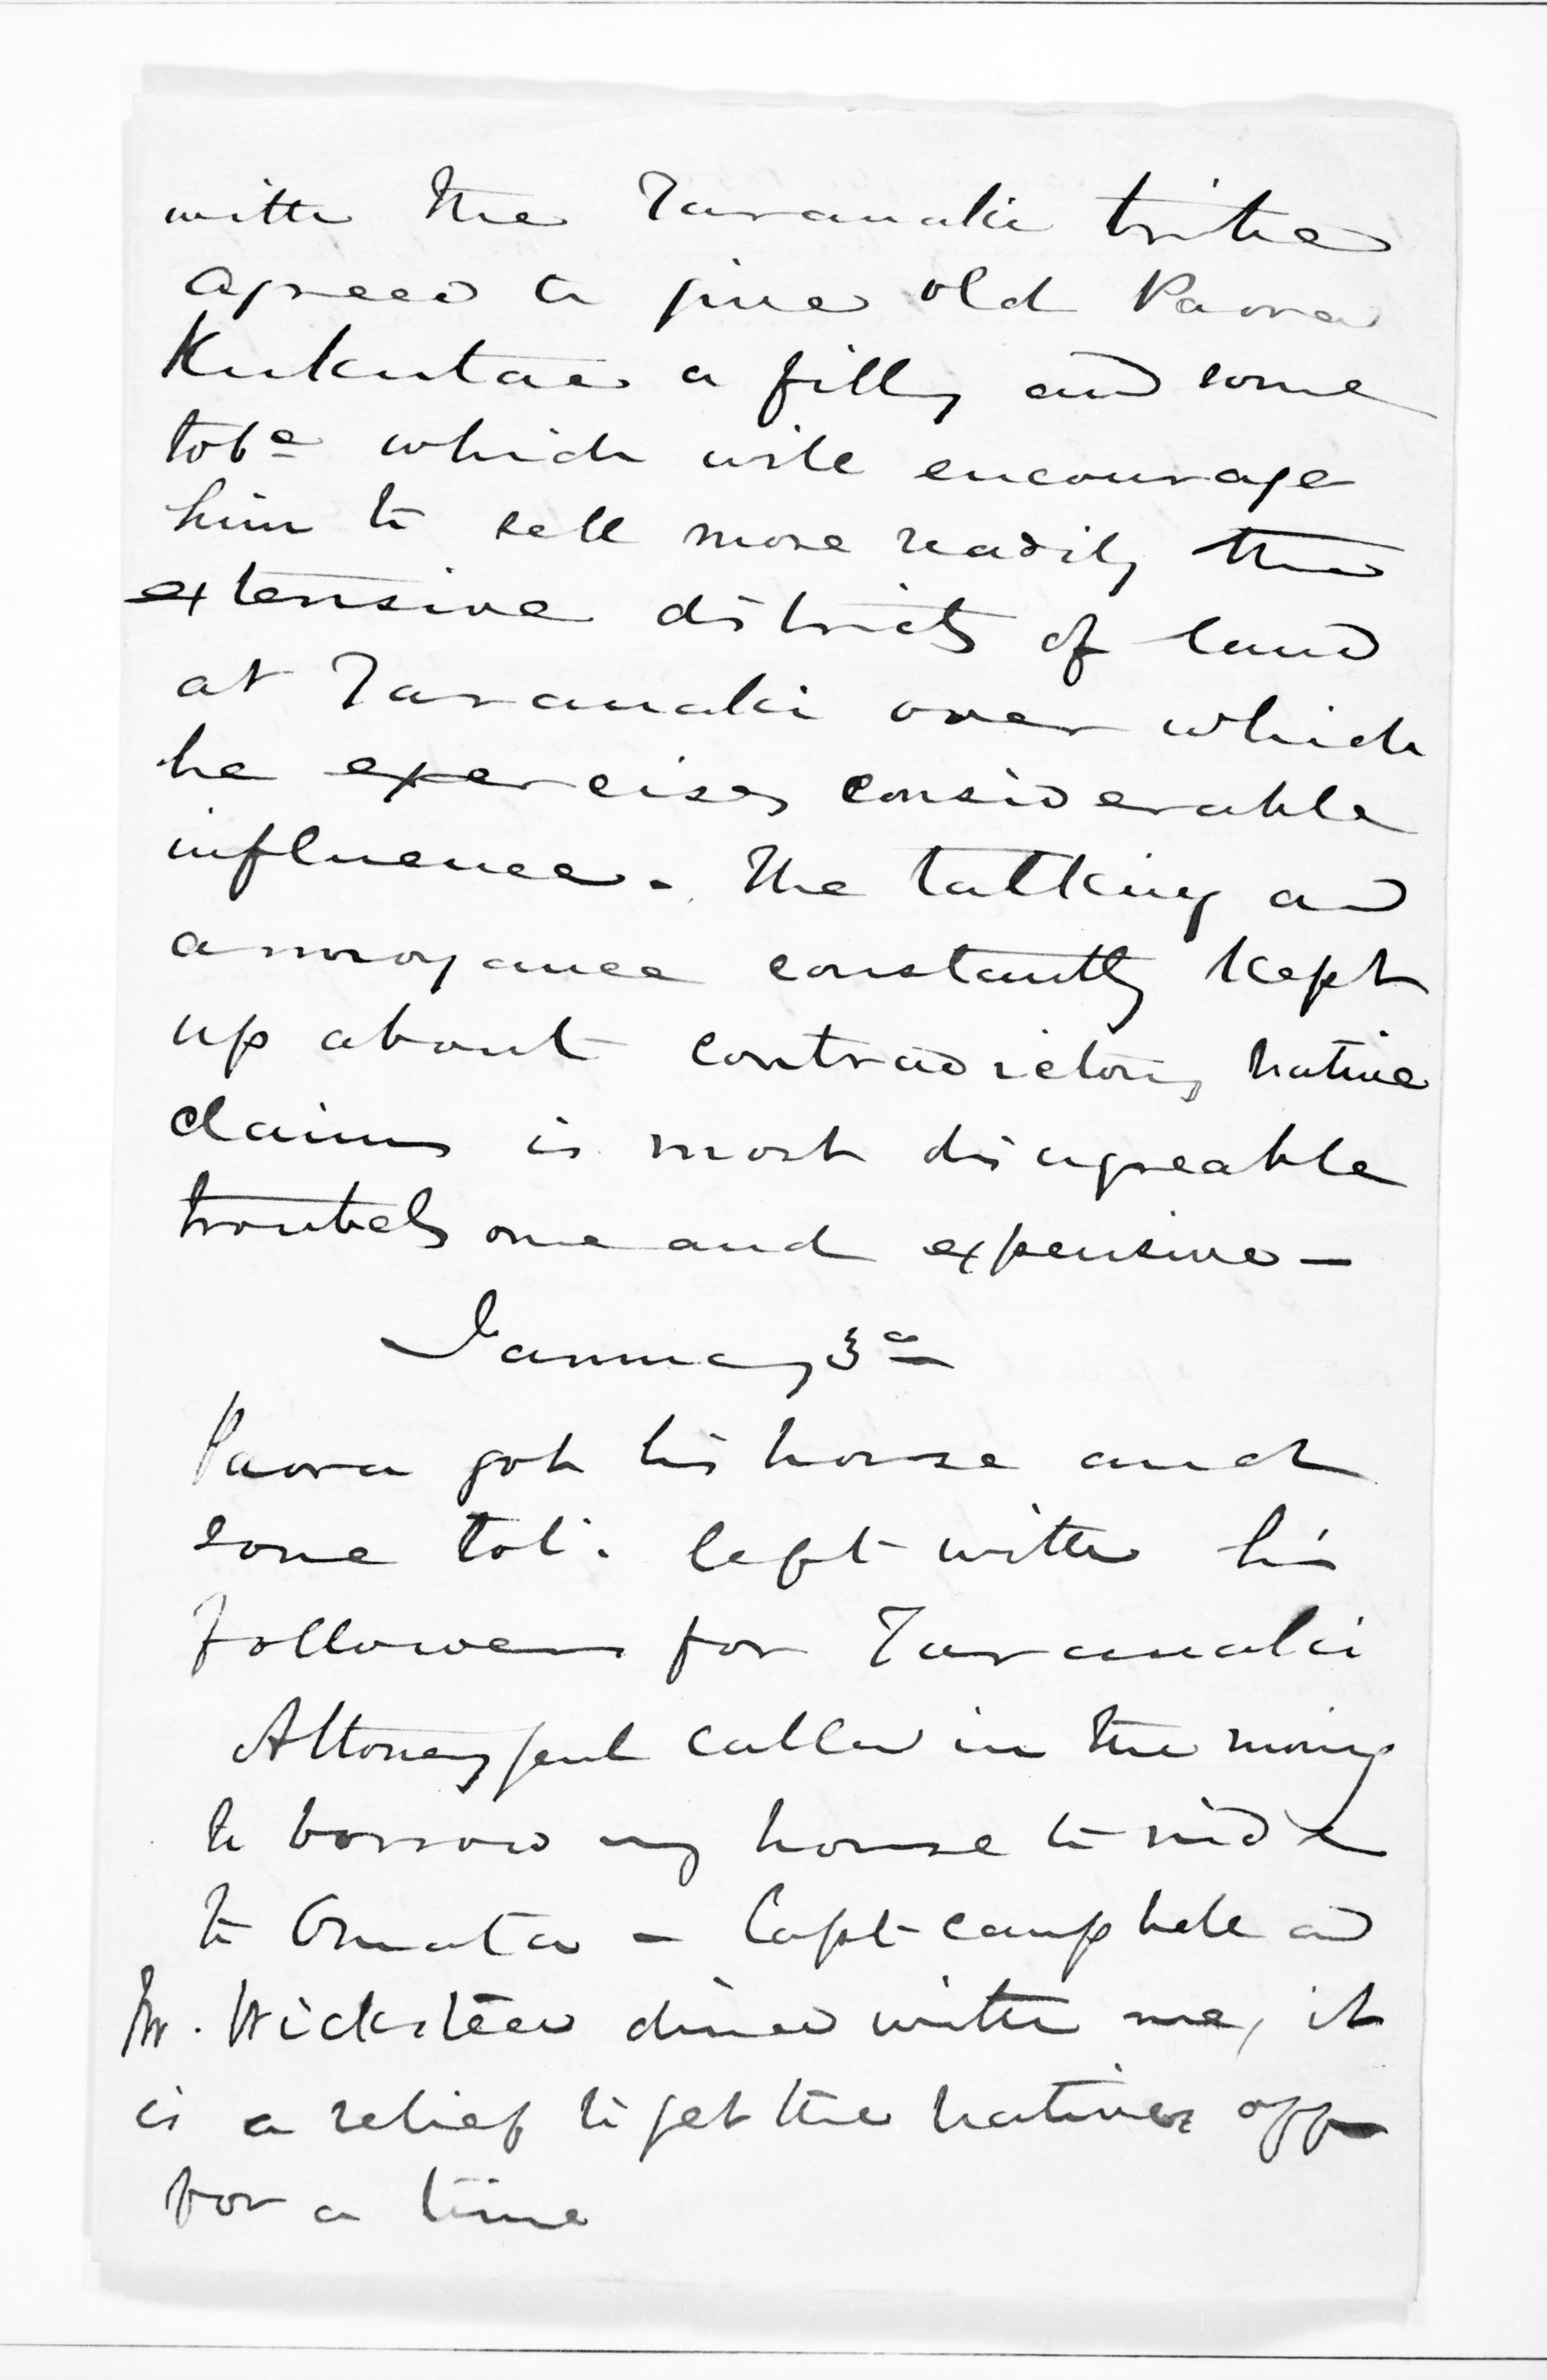 with the Taranaki tribe
agreed to give old Paora
Kukutae a filly and some
tobo which will encourage
him to sell more readily the
extensive districts of land
at Taranaki over which
he exercises considerable
influence. The talking and
annoyance constantly kept
up about contradictory native
claims is most disagreable
troublesome and expensive —
January 3d
Paora got his horse and
some tob: left with his
followers for Taranaki
Attorney Genl called in the morng
to borrow my horse to ride
to Omata — Capt Campbell and
Mr. Wicksteed dined with me, it
is a relief to get the natives off
for a time